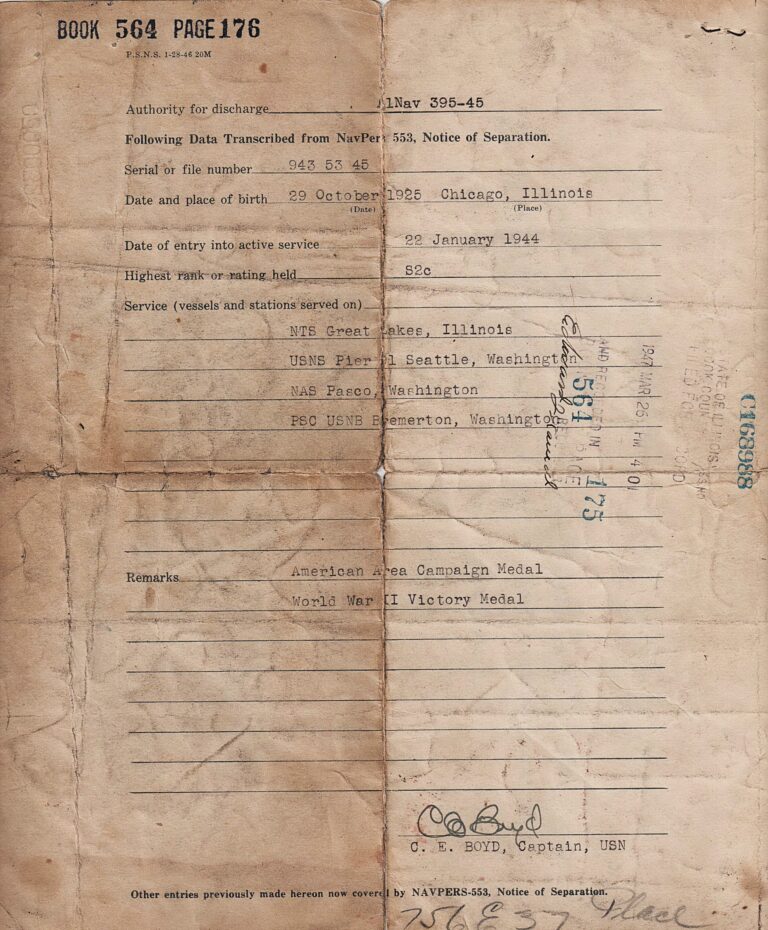 BOOK 564 PAGE 176
P.S.N.S. 1-28-46 20M
Authority for discharge AlNav 395-45
Following Data Transcribed from NavPers 553, Notice of Separation.
Serial or file number 943 53 45
Date and place of birth 29 October 1925 Chicago, Illinois
(Date) (Place)
Date of entry into active service 22 January 1944
Highest rank or rating held S2c
Service (vessels and stations served on)
NTS Great Lakes, Illinois
USNS Pier 91 Seattle, Washington
NAS Pasco, Washington
PSC USNB Bremerton, Washington
STATE OF ILLINOIS
COOK COUNTY
FILED FOR
1947 MAR 26 PM 4 01
AND RECORDED IN
564 PAGE 175
C168988
Remarks American Area Campaign Medal
World War II Victory Medal
C E Boyd
C. E. BOYD, Captain, USN
Other entries previously made hereon now covered by NAVPERS-553, Notice of Separation.
756 E 37 Place